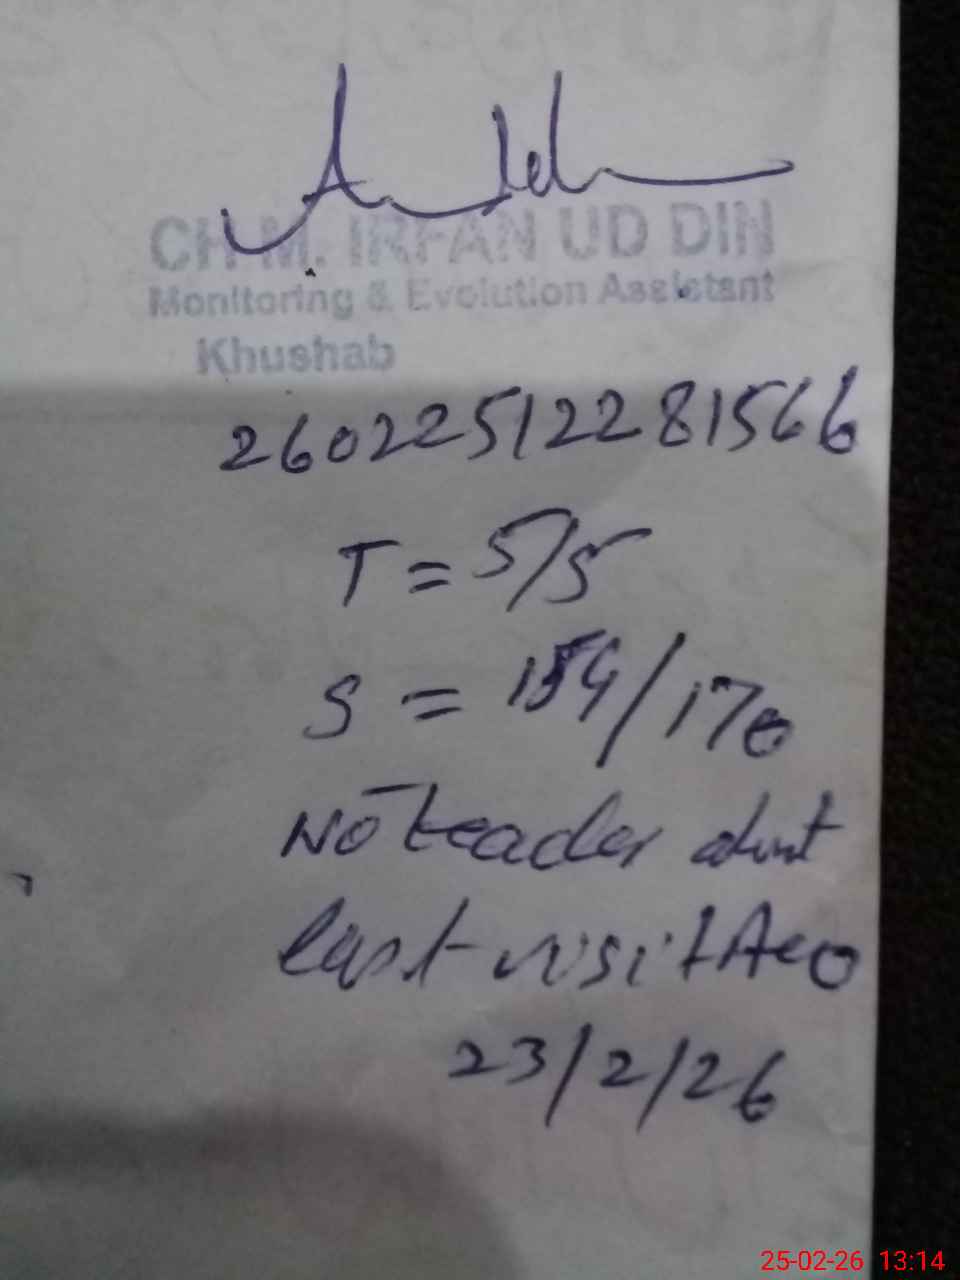 CH M. IRFAN UD DIN
Monitoring & Evolution Assistant
Khushab
260225122281566
T = 5/5
S = 154/170
No teacher
last visit AEO
23/2/26
25-02-26 13:14